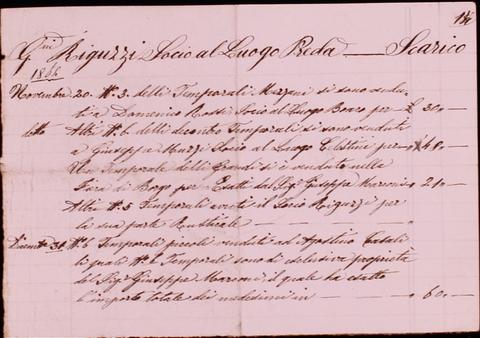 14
Gmi Riguzzi Socio al Luogo Preda — Scarico
1864
Novembre 20. N° 3. delli Temporali Mezzani si sono vendu-
ti a Domenico Rossi Socio al Luogo per £ 30, —
detto Altri N° 4. delli Temporali si sono venduti
a Giuseppe Muzzi Socio al Luogo Celestina per " 48, —
Un Temporale delli Grandi si è venduto nella
Fiera di per Esatti dal Sig. Giuseppe Marconi " 20, —
Altri N° 5 Temporali il Socio Riguzzi per
la sua parte Rusticale
Dicembre 31. N° 6 Temporali piccoli venduti ad Agostino
li quali N° 6. Temporali sono di esclusiva proprietà
del Sig. Giuseppe Marconi il quale ha esatto
l'importo totale dei medesimi in — " 60, —